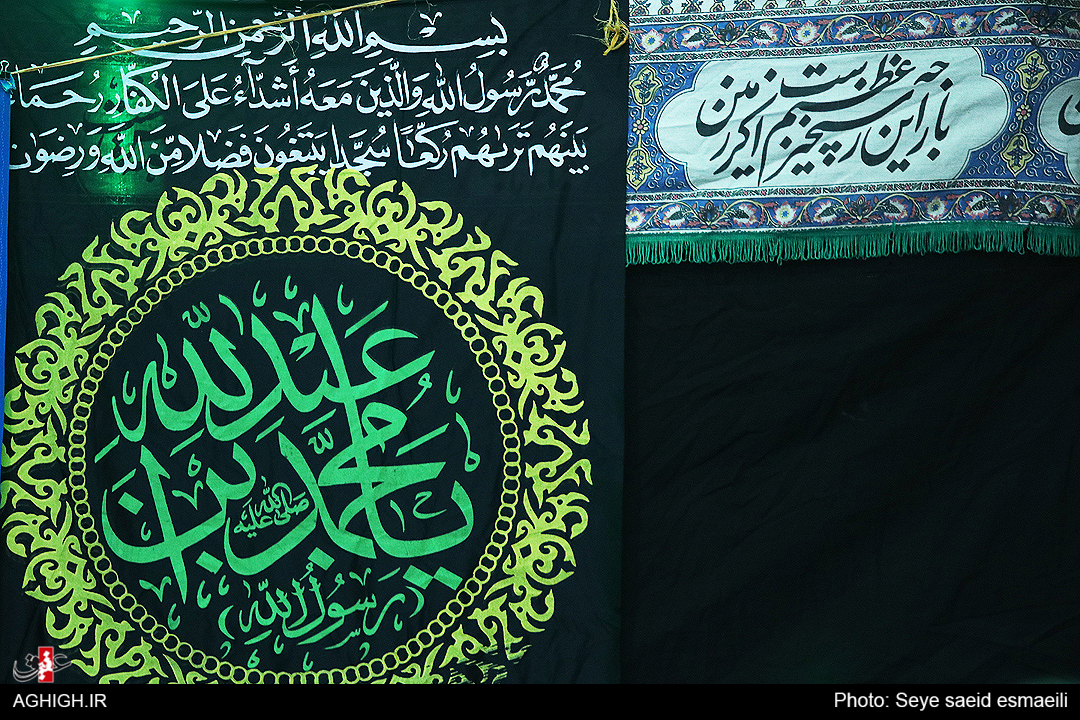 بِسْمِ اللهِ الرَّحْمنِ الرَّحيمِ
مُحَمَّدٌ رَّسُولُ اللهِ وَالَّذِينَ مَعَهُ أَشِدَّآءُ عَلَى الْكُفَّارِ رُحَمَا
بَيْنَهُمْ تَرَىٰهُمْ رُكَّعًا سُجَّدًا يَبْتَغُونَ فَضْلًا مِّنَ اللَّهِ وَرِضْوَٰن
يا مُحَمَّد بن عَبدِ اللّه
صَلَّى اللّه عَلَيْه
(رَسُولُ اللّهِ)
باز این چه رستخیز عظیم است کز زمین
عقیق
AGHIGH.IR
Photo: Seye saeid esmaeili